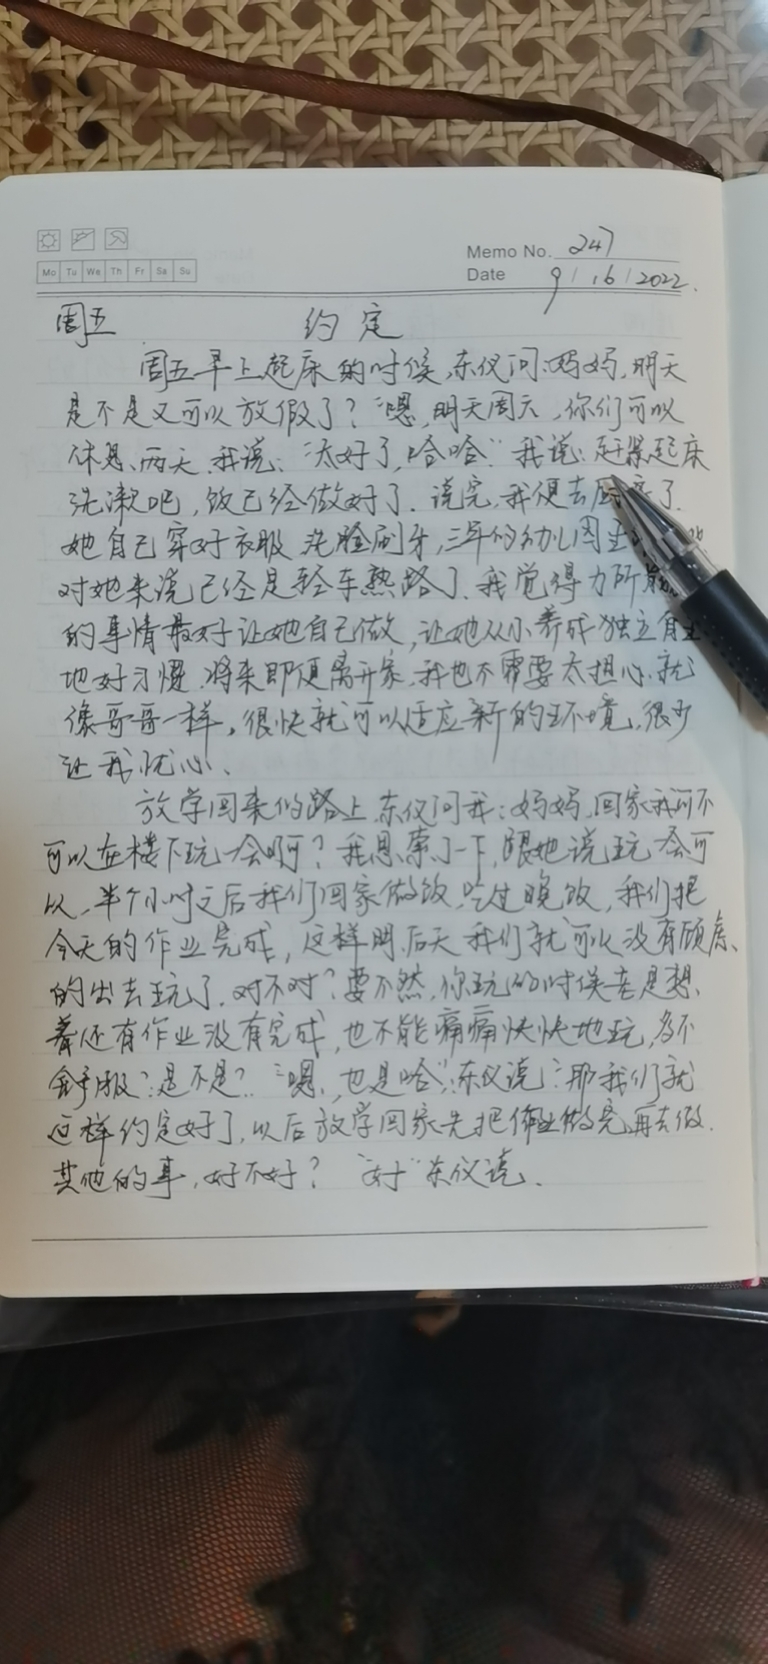 Memo No. 247
Mo Tu We Th Fr Sa Su
Date 9/16/2022.
周五 约定
周五早上起床的时候,东仪问:妈妈,明天
是不是又可以放假了?"嗯,明天周六,你们可以
休息两天.我说:"太好了,哈哈."我说:赶紧起床
洗漱吧,饭已经做好了.说完,我便去厨房了.
她自己穿好衣服 洗脸刷牙,三年的幼儿园生
对她来说已经是轻车熟路了.我觉得力所能
的事情最好让她自己做,让她从小养成独立自主
地好习惯.将来即便离开家,我也不需要太担心.就
像哥哥一样,很快就可以适应新的环境,很少
让我忧心.
放学回来的路上,东仪问我:妈妈,回家我可不
可以在楼下玩一会啊?我思索了一下,跟她说玩一会可
以,半个小时之后我们回家做饭,吃过晚饭,我们把
今天的作业完成,这样明、后天我们就可以没有顾虑、
的出去玩了,对不对?要不然,你玩的时候老是想、
着还有作业没有完成,也不能痛痛快快地玩,多不
舒服?是不是?."嗯,也是哈",东仪说:"那我们就
这样约定好了,以后放学回家先把作业做完,再去做.
其他的事,好不好?"好"东仪说.